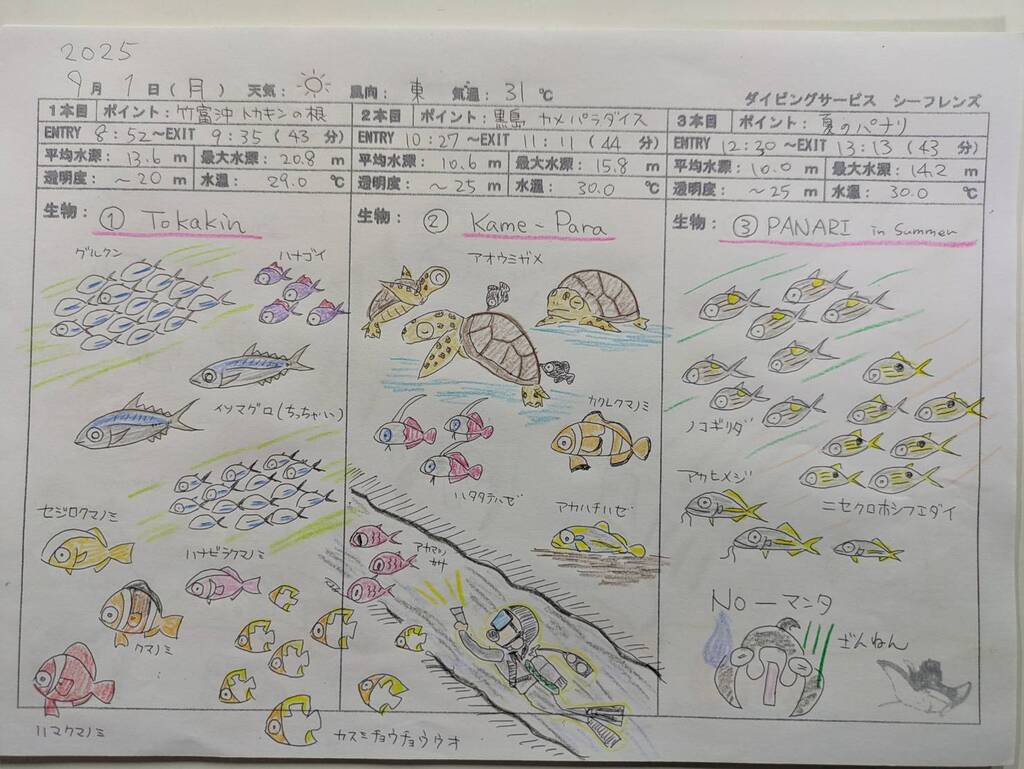 2025
9月1日(月) 天気: 風向: 東 気温: 31℃
ダイビングサービス シーフレンズ
1本目 ポイント: 竹富沖 トカキンの根
ENTRY 8:52~EXIT 9:35(43分)
平均水深: 13.6m 最大水深: 20.8m
透明度: ~20m 水温: 29.0℃
生物: ① Tokakin
グルクン
ハナゴイ
イソマグロ(ちっちゃい)
セジロクマノミ
ハナビラクマノミ
クマノミ
ハマクマノミ
カスミチョウチョウウオ
2本目 ポイント: 黒島 カメパラダイス
ENTRY 10:27~EXIT 11:11(44分)
平均水深: 10.6m 最大水深: 15.8m
透明度: ~25m 水温: 30.0℃
生物: ② Kame-Para
アオウミガメ
カクレクマノミ
ハタタテハゼ
アカハチハゼ
アカマツカサ
3本目 ポイント: 夏のパナリ
ENTRY 12:30~EXIT 13:13(43分)
平均水深: 10.0m 最大水深: 14.2m
透明度: ~25m 水温: 30.0℃
生物: ③ PANARI in Summer
ノコギリダイ
アカヒメジ
ニセクロホシフエダイ
No-マンタ
ざんねん